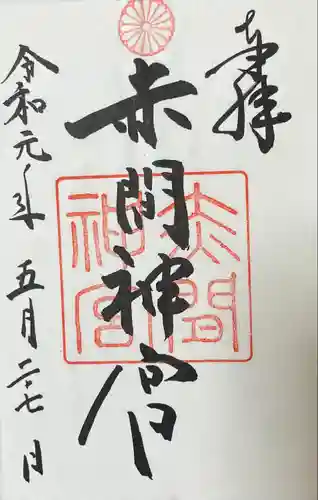 奉拝
赤間神宮
赤間
神宮
令和元年 五月二十七日